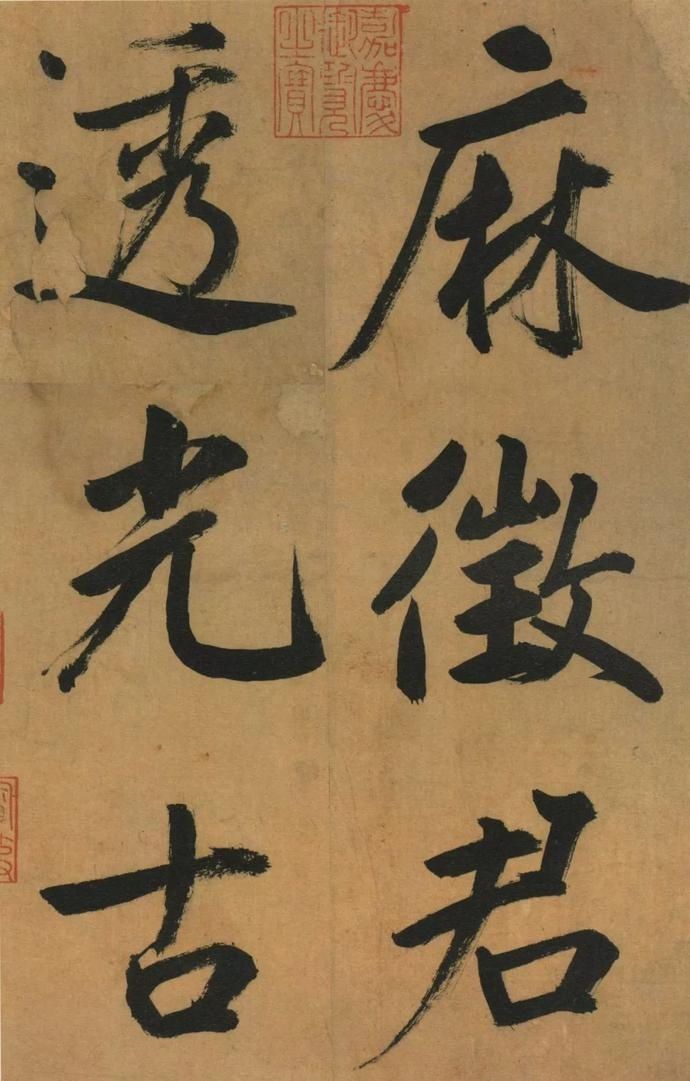 麻徵君
透光古
嘉慶
御覽
之寶